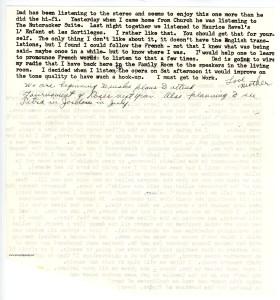 Dad has been listening to the stereo and seems to enjoy this one more than he
did the hi-fi. Yesterday when I came home from Church he was listening to
The Nutcracker Suite. Last night together we listened to Maurice Ravel's
L' Enfant et les Sortileges. I rather like that. You should get that for your-
self. The only thing I don't like about it, it doesn't have the English trans-
lations, but I found I could follow the French - not that I knew what was being
said- maybe once in a while- but to know where I was. I would help one to learn
to pronounce French words to listen to that a few times. Dad is going to wire
my radio that I have back here in the Family Room to the speakers in the living
room. I decided when I listen the opera on Sat afternoon it would improve on
the tone quality to have such a hook-up. I must get to work. Love
Mother
We are beginning to make plans to attend
Tournament of Roses next year. Also planning to
in July